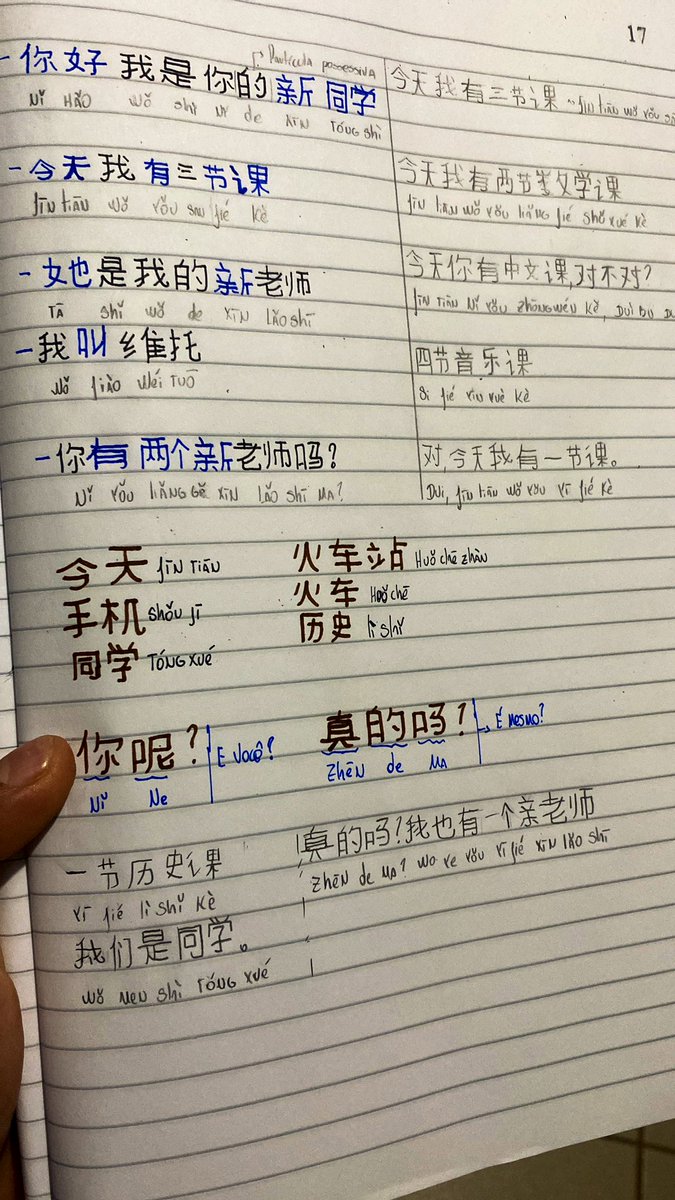 17
Partícula possessiva
- 你好 我是你的新同学
Nǐ HǍO wǒ shì Nǐ de xīN TÓNG shì
- 今天我有三节课
jīN tiāN wǒ yǒu san jié kè
- 她是我的新老师
TĀ shì wǒ de xīN LǍO shī
- 我叫维托
wǒ jiào wéi TUŌ
- 你有两个新老师吗?
Nǐ yǒu liǎNG GÈ xīN LǍO shī MA?
今天我有三节课
jīN tiāN wǒ yǒu
今天我有两节数学课
jīN tiāN wǒ yǒu liǎNG jié shǔ xué kè
今天你有中文课,对不对?
jīN tiāN Nǐ yǒu zhōNGwéN kè, Duì Bu
四节音乐课
Sì jié yīN yuè kè
对,今天我有一节课。
Duì, jīN tiāN wǒ yǒu yī jié kè
今天 jīN tiāN
手机 shǒu jī
同学 TÓNG xué
火车站 Huǒ chē zhàN
火车 Huǒ chē
历史 lì shǐ
你呢?
Nǐ Ne
E você?
真的吗?
zhēN de MA
É mesmo?
一节历史课
yī jié lì shǐ kè
我们是同学。
wǒ meN shì TÓNG xué
真的吗?我也有一个亲老师
zhēN de MA? wo ye yǒu yī jié xīN lǎo shī